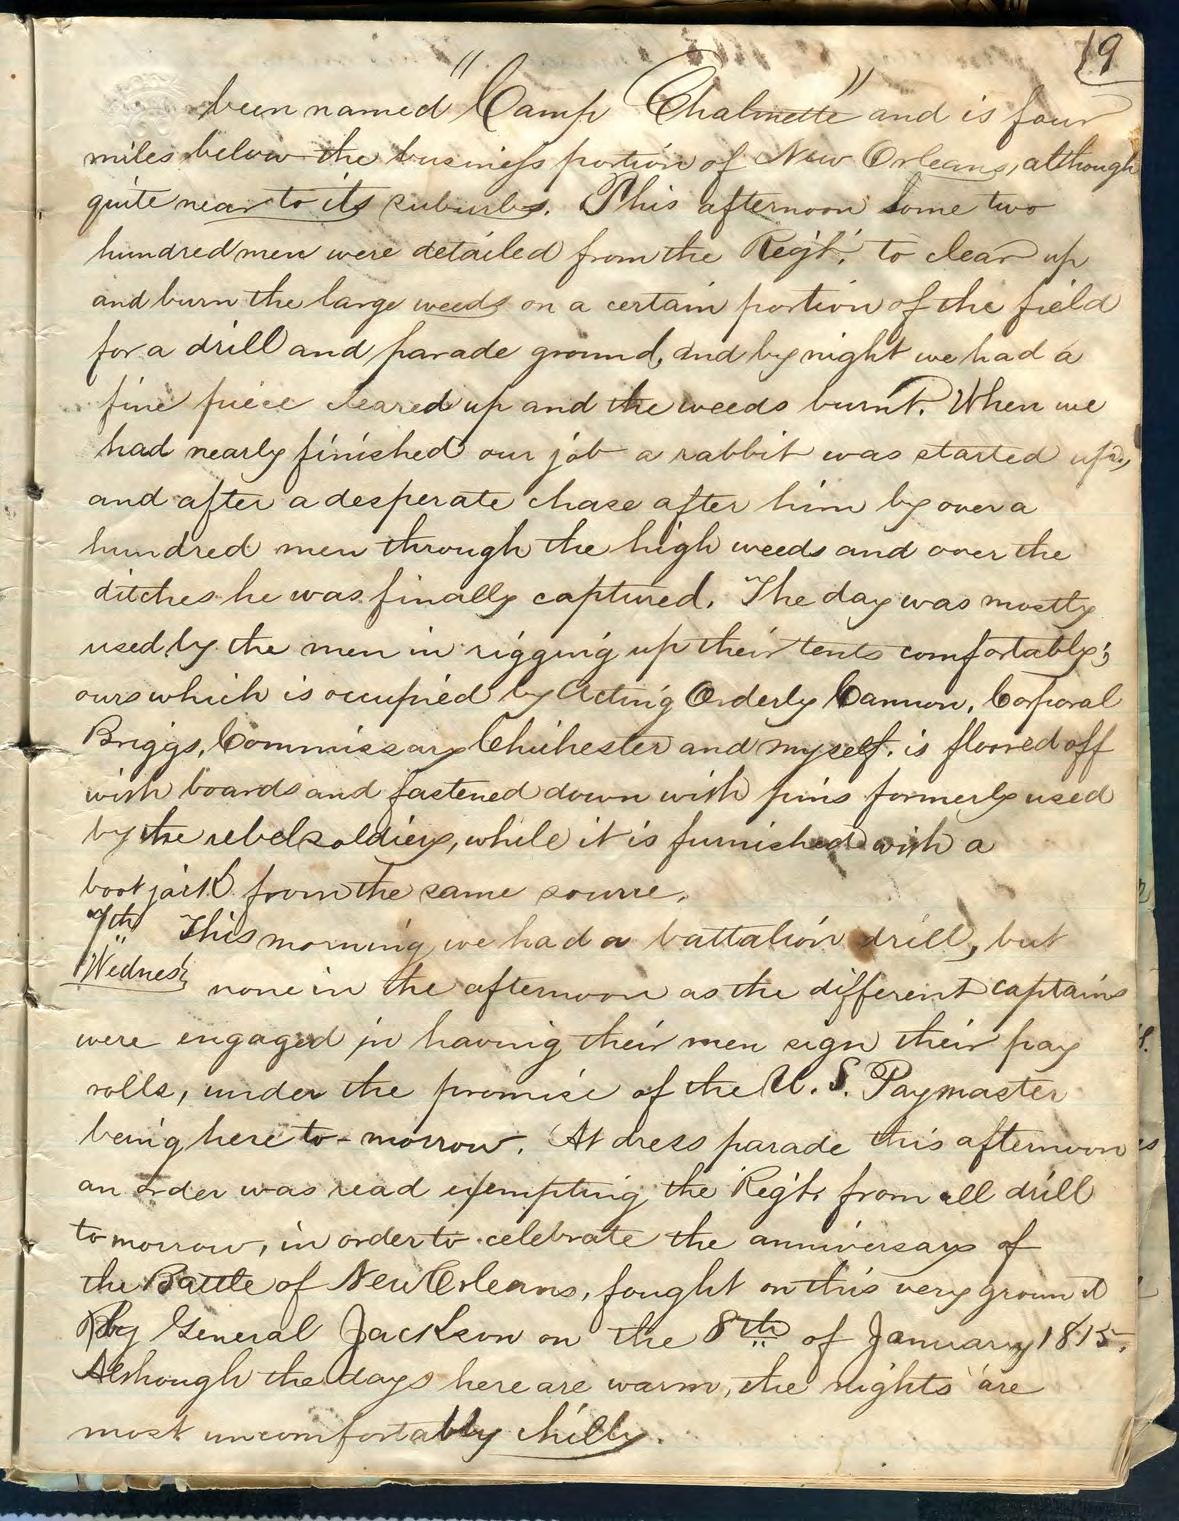 19
been named "Camp Chalmette" and is four
miles below the business portion of New Orleans, although
quite near to its suburbs. This afternoon some two
hundred men were detailed from the Reg't. to clear up
and burn the large weeds on a certain portion of the field
for a drill and parade ground, and by night we had a
fine piece cleared up and the weeds burnt. When we
had nearly finished our job a rabbit was started up,
and after a desperate chase after him by over a
hundred men through the high weeds and over the
ditches he was finally captured. The day was mostly
used by the men in rigging up their tents comfortably;
ours which is occupied by Acting Orderly Cannon, Corporal
Briggs, Commissary Chichester and myself, is floored off
with boards and fastened down with pins formerly used
by the rebel soldiers, while it is furnished with a
boot jack from the same source.
7th This morning we had a battalion drill, but
Wednes. none in the afternoon as the different captains
were engaged in having their men sign their pay
rolls, under the promise of the U. S. Paymaster
being here to-morrow. At dress parade this afternoon
an order was read exempting the Reg't. from all drill
tomorrow, in order to celebrate the anniversary of
the Battle of New Orleans, fought on this very ground
by General Jackson on the 8th of January 1815.
Although the days here are warm, the nights are
most uncomfortably chilly.